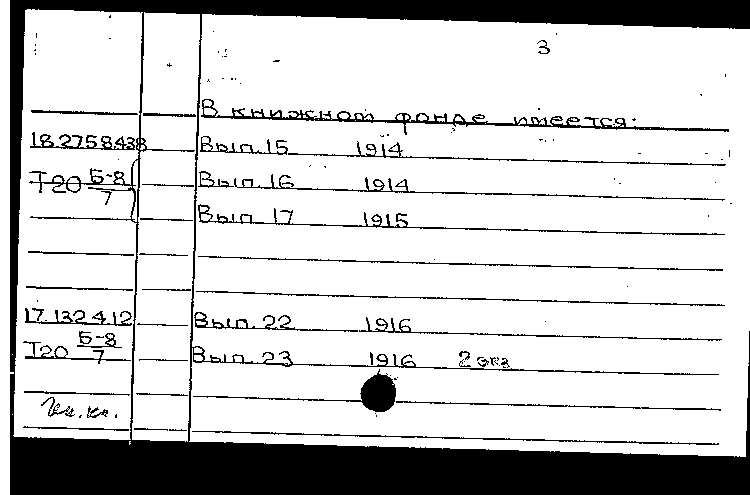 3
В книжном фонде имеется:
18.2758438 Вып. 15 1914
Т20 Б-8/7 Вып. 16 1914
Вып. 17 1915
17.132.4.12 Вып. 22 1916
Т20 Б-8/7 Вып. 23 1916 2 экз